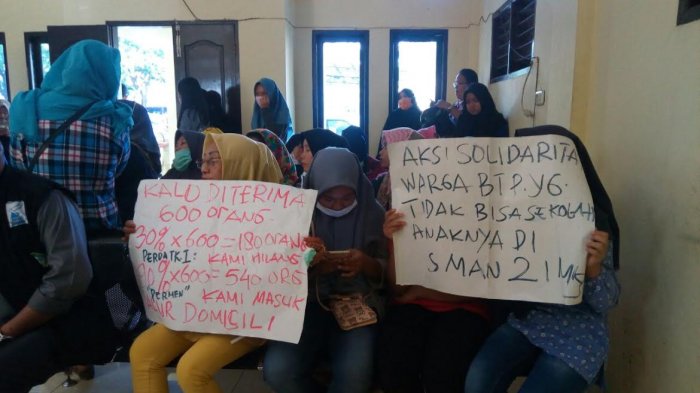 KALO DITERIMA
600 ORANG
30% x 600 = 180 ORANG
KAMI HILANG
% x 600 = 540 ORG
"PERMEN" KAMI MASUK
DOMISILI
AKSI SOLIDARITA
WARGA BTP. YG.
TIDAK BISA SEKOLAH
ANAKNYA DI
SMAN 21 MKS